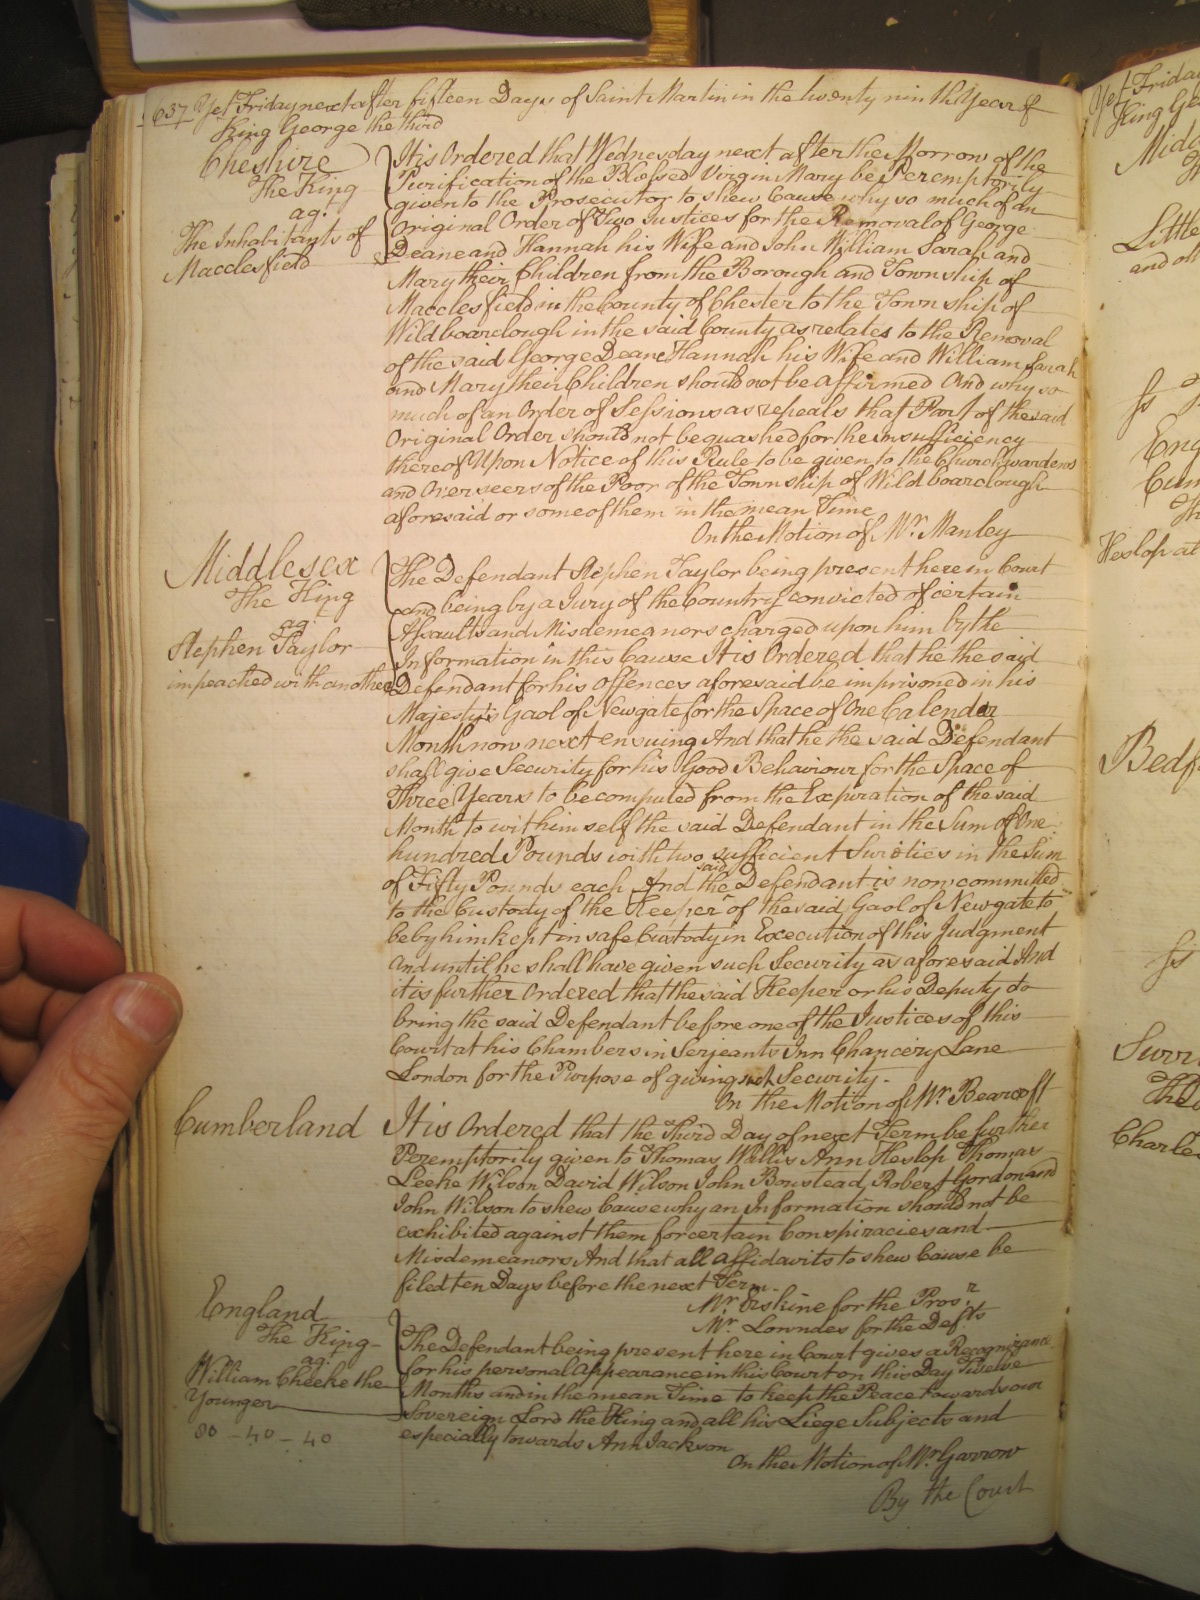 637 Yet Friday next after fifteen Days of Saint Martin in the twenty ninth Year of
King George the third
Cheshire
The King
agt
The Inhabitants of
Macclesfield
It is Ordered that Wednesday next after the Morrow of the
Purification of the Blessed Virgin Mary be Peremptorily
given to the Prosecutor to shew Cause why so much of an
Original Order of Two Justices for the Removal of George
Deane and Hannah his Wife and John William Sarah and
Mary their Children from the Borough and Township of
Macclesfield in the County of Chester to the Township of
Wildboarclough in the said County as relates to the Removal
of the said George Deane Hannah his Wife and William Sarah
and Mary their Children should not be affirmed And why so
much of an Order of Sessions as repeals that Part of the said
Original Order should not be quashed for the insufficiency
thereof Upon Notice of this Rule to be given to the Churchwardens
and Overseers of the Poor of the Township of Wildboarclough
aforesaid or some of them in the mean Time
On the Motion of Mr. Manley
Middlesex
The King
agt
Stephen Taylor
impeached with another
The Defendant Stephen Taylor being present here in Court
and being by a Jury of the Country convicted of certain
Assaults and Misdemeanors charged upon him by the
Information in this Cause It is Ordered that he the said
Defendant for his Offences aforesaid be imprisoned in his
Majesty's Gaol of Newgate for the Space of One Calendar
Month now next ensuing And that he the said Defendant
shall give Security for his Good Behaviour for the Space of
Three Years to be computed from the Expiration of the said
Month to wit himself the said Defendant in the Sum of One
hundred Pounds with two sufficient Sureties in the Sum
of Fifty Pounds each And the said Defendant is now committed
to the Custody of the Keeper of the said Gaol of Newgate to
be by him kept in safe Custody in Execution of this Judgment
and until he shall have given such Security as aforesaid And
it is further Ordered that the said Keeper or his Deputy do
bring the said Defendant before one of the Justices of this
Court at his Chambers in Serjeants Inn Chancery Lane
London for the Purpose of giving such Security.
On the Motion of Mr. Bearcroft
Cumberland
It is Ordered that the Third Day of next Term be further
Peremptorily given to Thomas Willis Ann Heslop Thomas
Leeke Wilson David Wilson John Bowstead Robert Gordon and
John Wilson to shew Cause why an Information should not be
exhibited against them for certain Conspiracies and
Misdemeanors And that all affidavits to shew Cause be
filed ten Days before the next Term.
Mr. Erskine for the Prosr.
Mr. Lowndes for the Defts
England
The King
agt
William Cheeke the
Younger
80 - 40 - 40
The Defendant being present here in Court gives a Recognizance
for his personal Appearance in this Court on this Day Twelve
Months and in the mean Time to keep the Peace towards our
Sovereign Lord the King and all his Liege Subjects and
especially towards Ann Jackson
On the Motion of Mr Garrow
By the Court
Yet Friday
King Ge
Little
and ot
Heslop at
Bedf
Surr
Charles